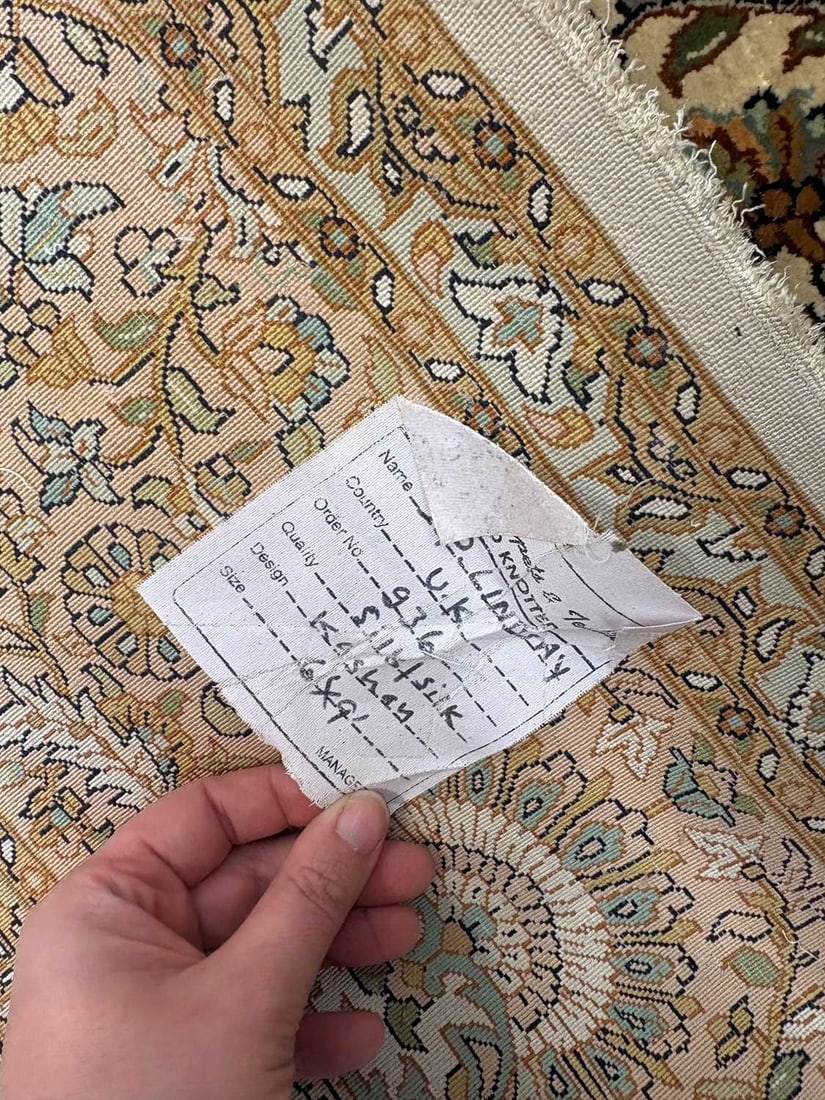 KNOTTED
Name LINDSAY
Country U.K
Order No. 936
Quality Silk/silk
Design Kashan
Size 6x9'
MANAGE